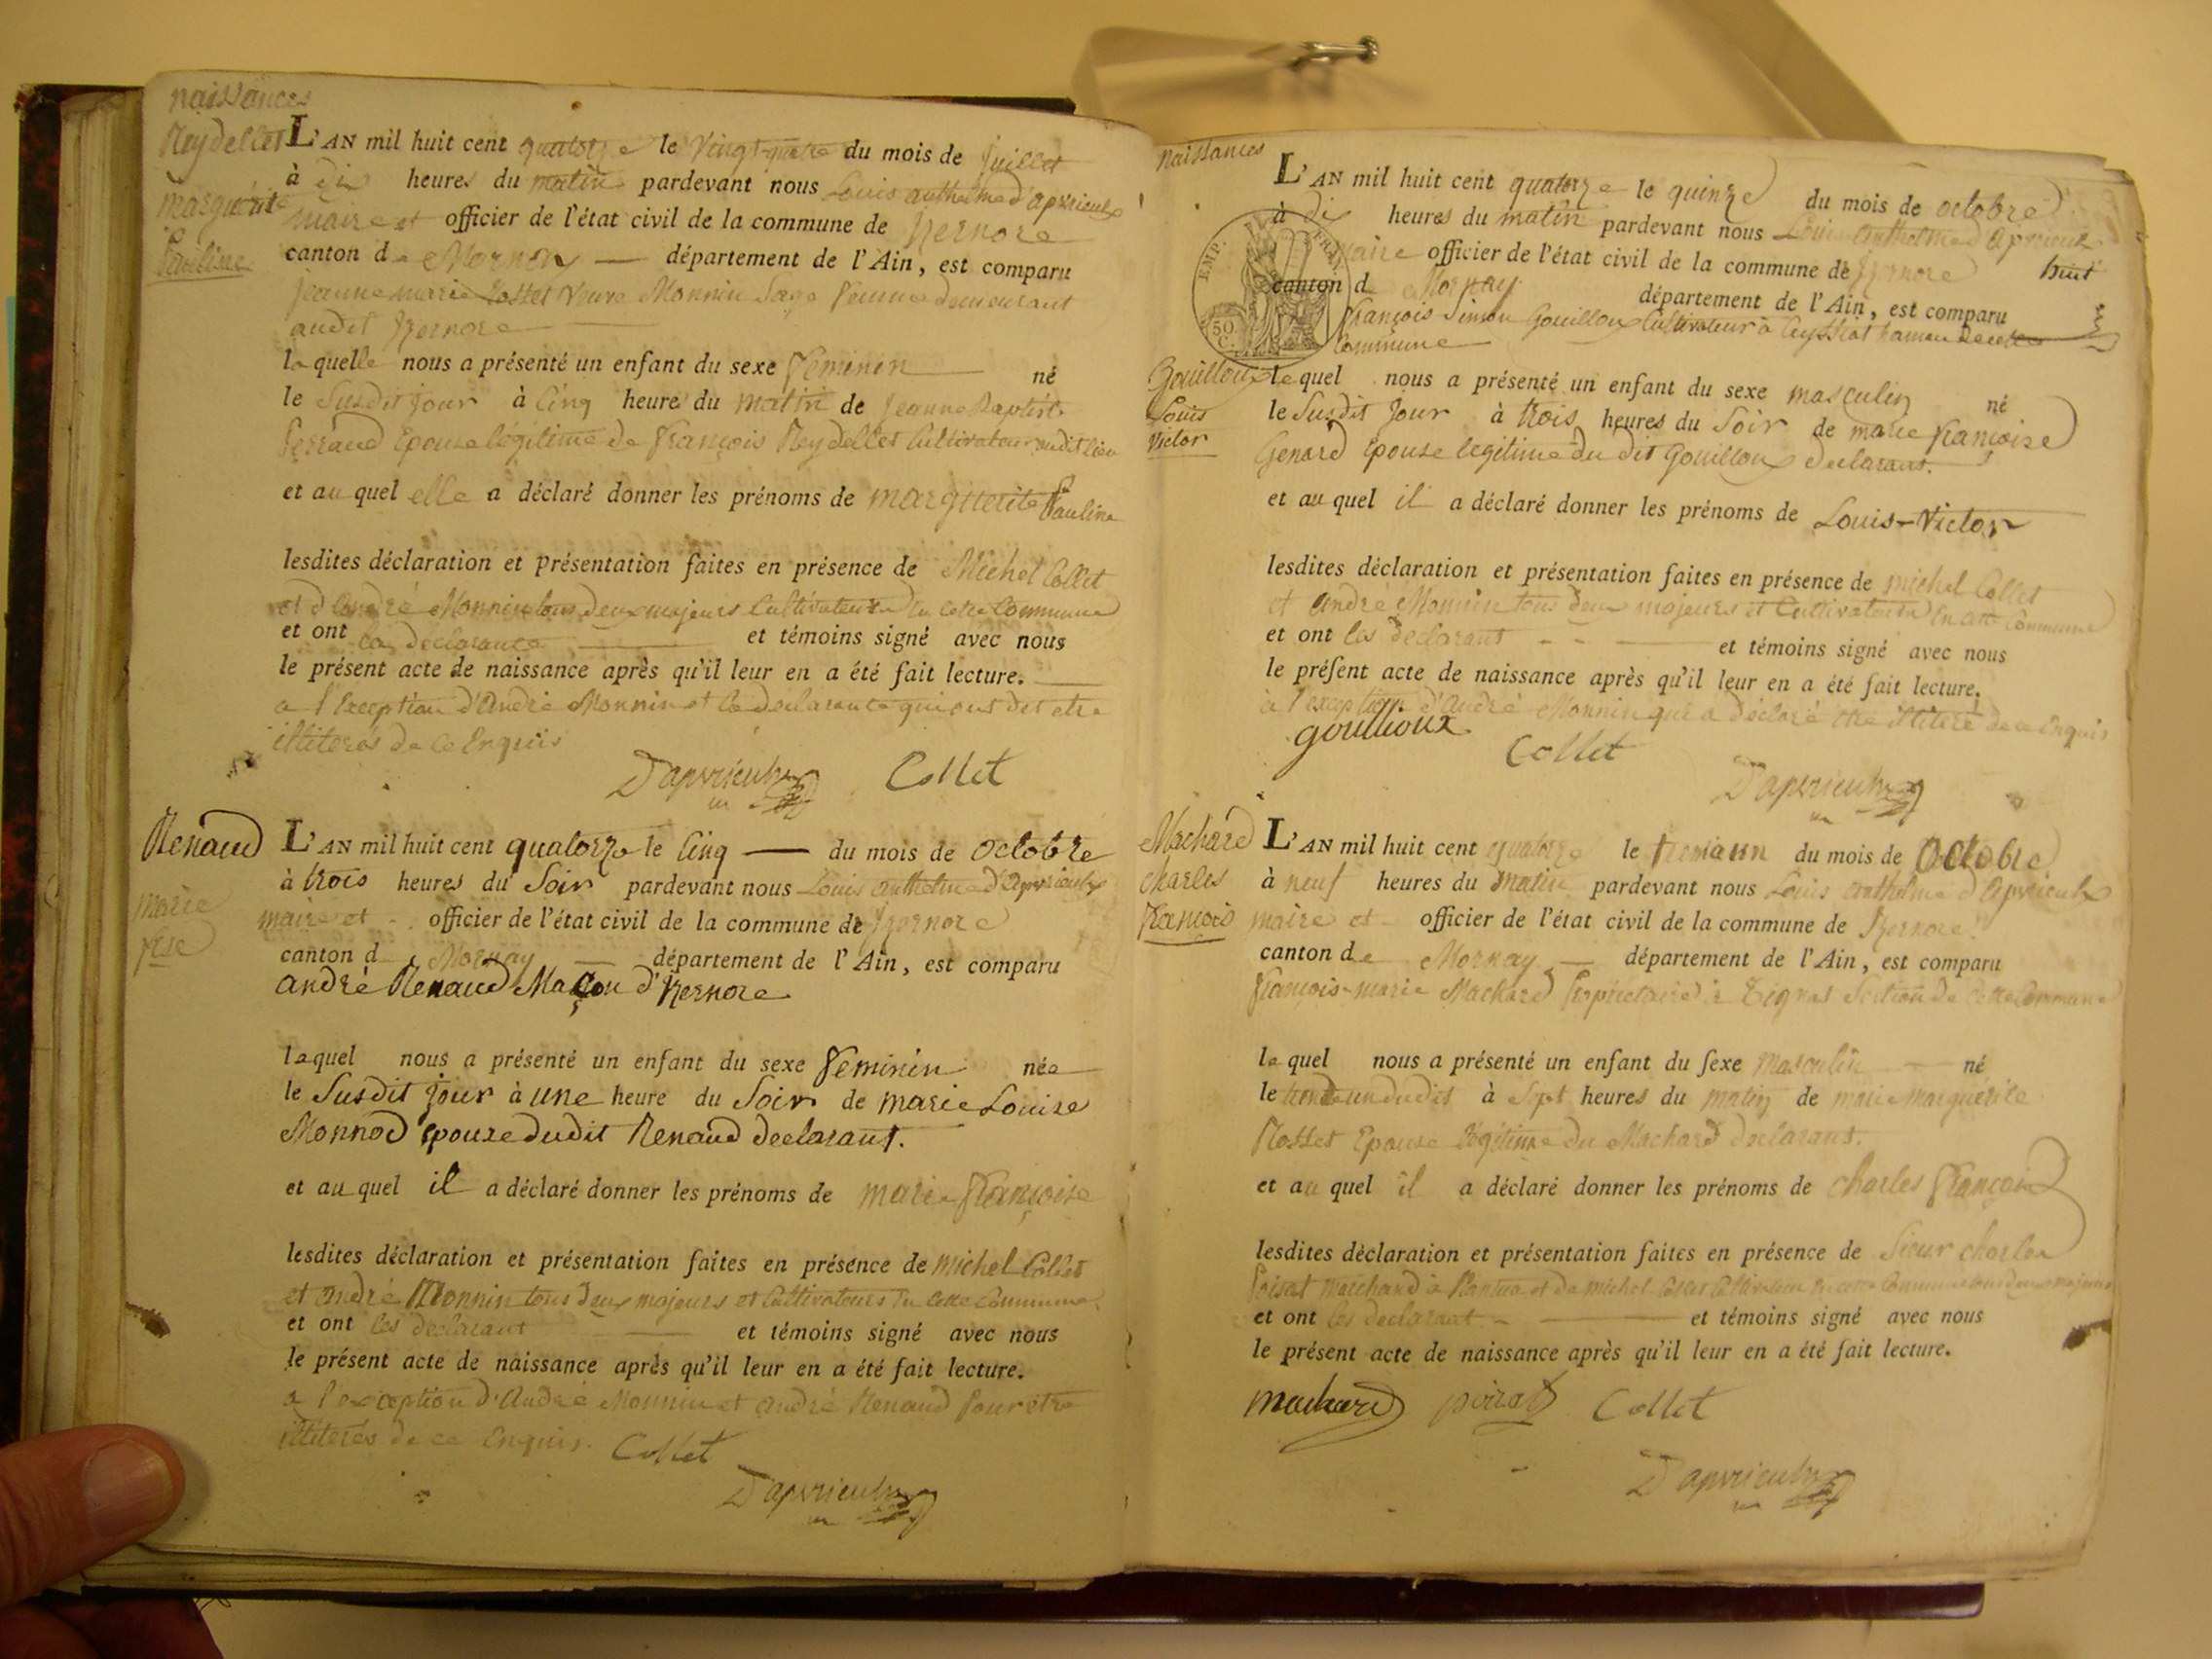 naissances
Reydellet
Marguerite
Pauline
L'AN mil huit cent quatorze le vingt quatre du mois de juillet
à dix heures du matin pardevant nous Louis anthelme d'apvrieulx
maire et officier de l'état civil de la commune de Izernore
canton de Mornay département de l'Ain, est comparu
jeanne marie Rosset veuve Monnin Sage femme demeurant
audit Izernore
laquelle nous a présenté un enfant du sexe féminin né
le Susdit jour à cinq heure du matin de jeanne Baptiste
Ferraud Epouse légitime de François Reydellet Cultivateur audit lieu
et au quel elle a déclaré donner les prénoms de marguerite Pauline
lesdites déclaration et présentation faites en présence de Michel Collet
et d'andré Monnin tous deux majeurs Cultivateurs En cette Commune
et ont la declarante et témoins signé avec nous
le présent acte de naissance après qu'il leur en a été fait lecture.
a l'exception d'André Monnin et la declarante qui ont dit etre
illiterés de ce Enquis
D'apvrieulx Collet
Renaud
marie
fse
L'AN mil huit cent quatorze le cinq du mois de octobre
à trois heures du Soir pardevant nous Louis anthelme d'apvrieulx
maire et officier de l'état civil de la commune de Izernore
canton d Mornay département de l'Ain, est comparu
andré Renaud Maçon d'Izernore
lequel nous a présenté un enfant du sexe féminin née
le Susdit jour à une heure du Soir de marie Louise
Monnod épouse dudit Renaud declarant.
et au quel il a déclaré donner les prénoms de marie françoise
lesdites déclaration et présentation faites en présence de michel Collet
et andré Monnin tous deux majeurs et Cultivateurs En cette Commune
et ont les declarant et témoins signé avec nous
le présent acte de naissance après qu'il leur en a été fait lecture.
a l'exception d'André Monnin et andré Renaud pour etre
illiterés de ce Enquis. Collet
D'apvrieulx
naissances
EMP. FRAN.
50
C.
Gouilloux
Louis
Victor
L'AN mil huit cent quatorze le quinze du mois de octobre
à dix heures du matin pardevant nous Louis anthelme d'apvrieulx
maire officier de l'état civil de la commune de Izernore huit
canton d Mornay département de l'Ain, est comparu
François Simon Gouilloux Cultivateur à Ceyssiat hameau de cette
Commune
lequel nous a présenté un enfant du sexe masculin né
le Susdit jour à trois heures du Soir de marie françoise
Genard épouse legitime du dit Gouilloux declarant.
et au quel il a déclaré donner les prénoms de Louis-Victor
lesdites déclaration et présentation faites en présence de michel Collet
et andré Monnin tous deux majeurs et Cultivateurs En cette Commune
et ont les declarant et témoins signé avec nous
le présent acte de naissance après qu'il leur en a été fait lecture.
à l'exception d'André Monnin qui a déclaré etre illiteré de ce Enquis
gouillioux
Collet
D'apvrieulx
Machard
charles
François
L'AN mil huit cent quatorze le trente un du mois de Octobre
à neuf heures du matin pardevant nous Louis anthelme d'apvrieulx
maire et officier de l'état civil de la commune de Izernore
canton de Mornay département de l'Ain, est comparu
François-marie Machard Proprietaire à Tignat Section de cette Commune
lequel nous a présenté un enfant du sexe masculin né
le trente un dudit à Sept heures du matin de marie marguerite
Rosset Epouse légitime du Machard declarant.
et au quel il a déclaré donner les prénoms de charles François
lesdites déclaration et présentation faites en présence de Sieur charles
Poisat Marchand à Nantua et de michel Collet Cultivateur En cette Commune tous deux majeurs
et ont les declarant et témoins signé avec nous
le présent acte de naissance après qu'il leur en a été fait lecture.
machard poisat Collet
D'apvrieulx